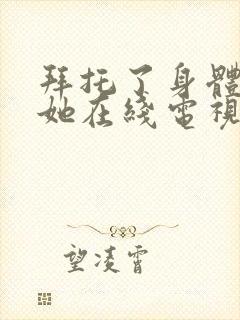 拜托了身體
她在綫電視
望凌霄